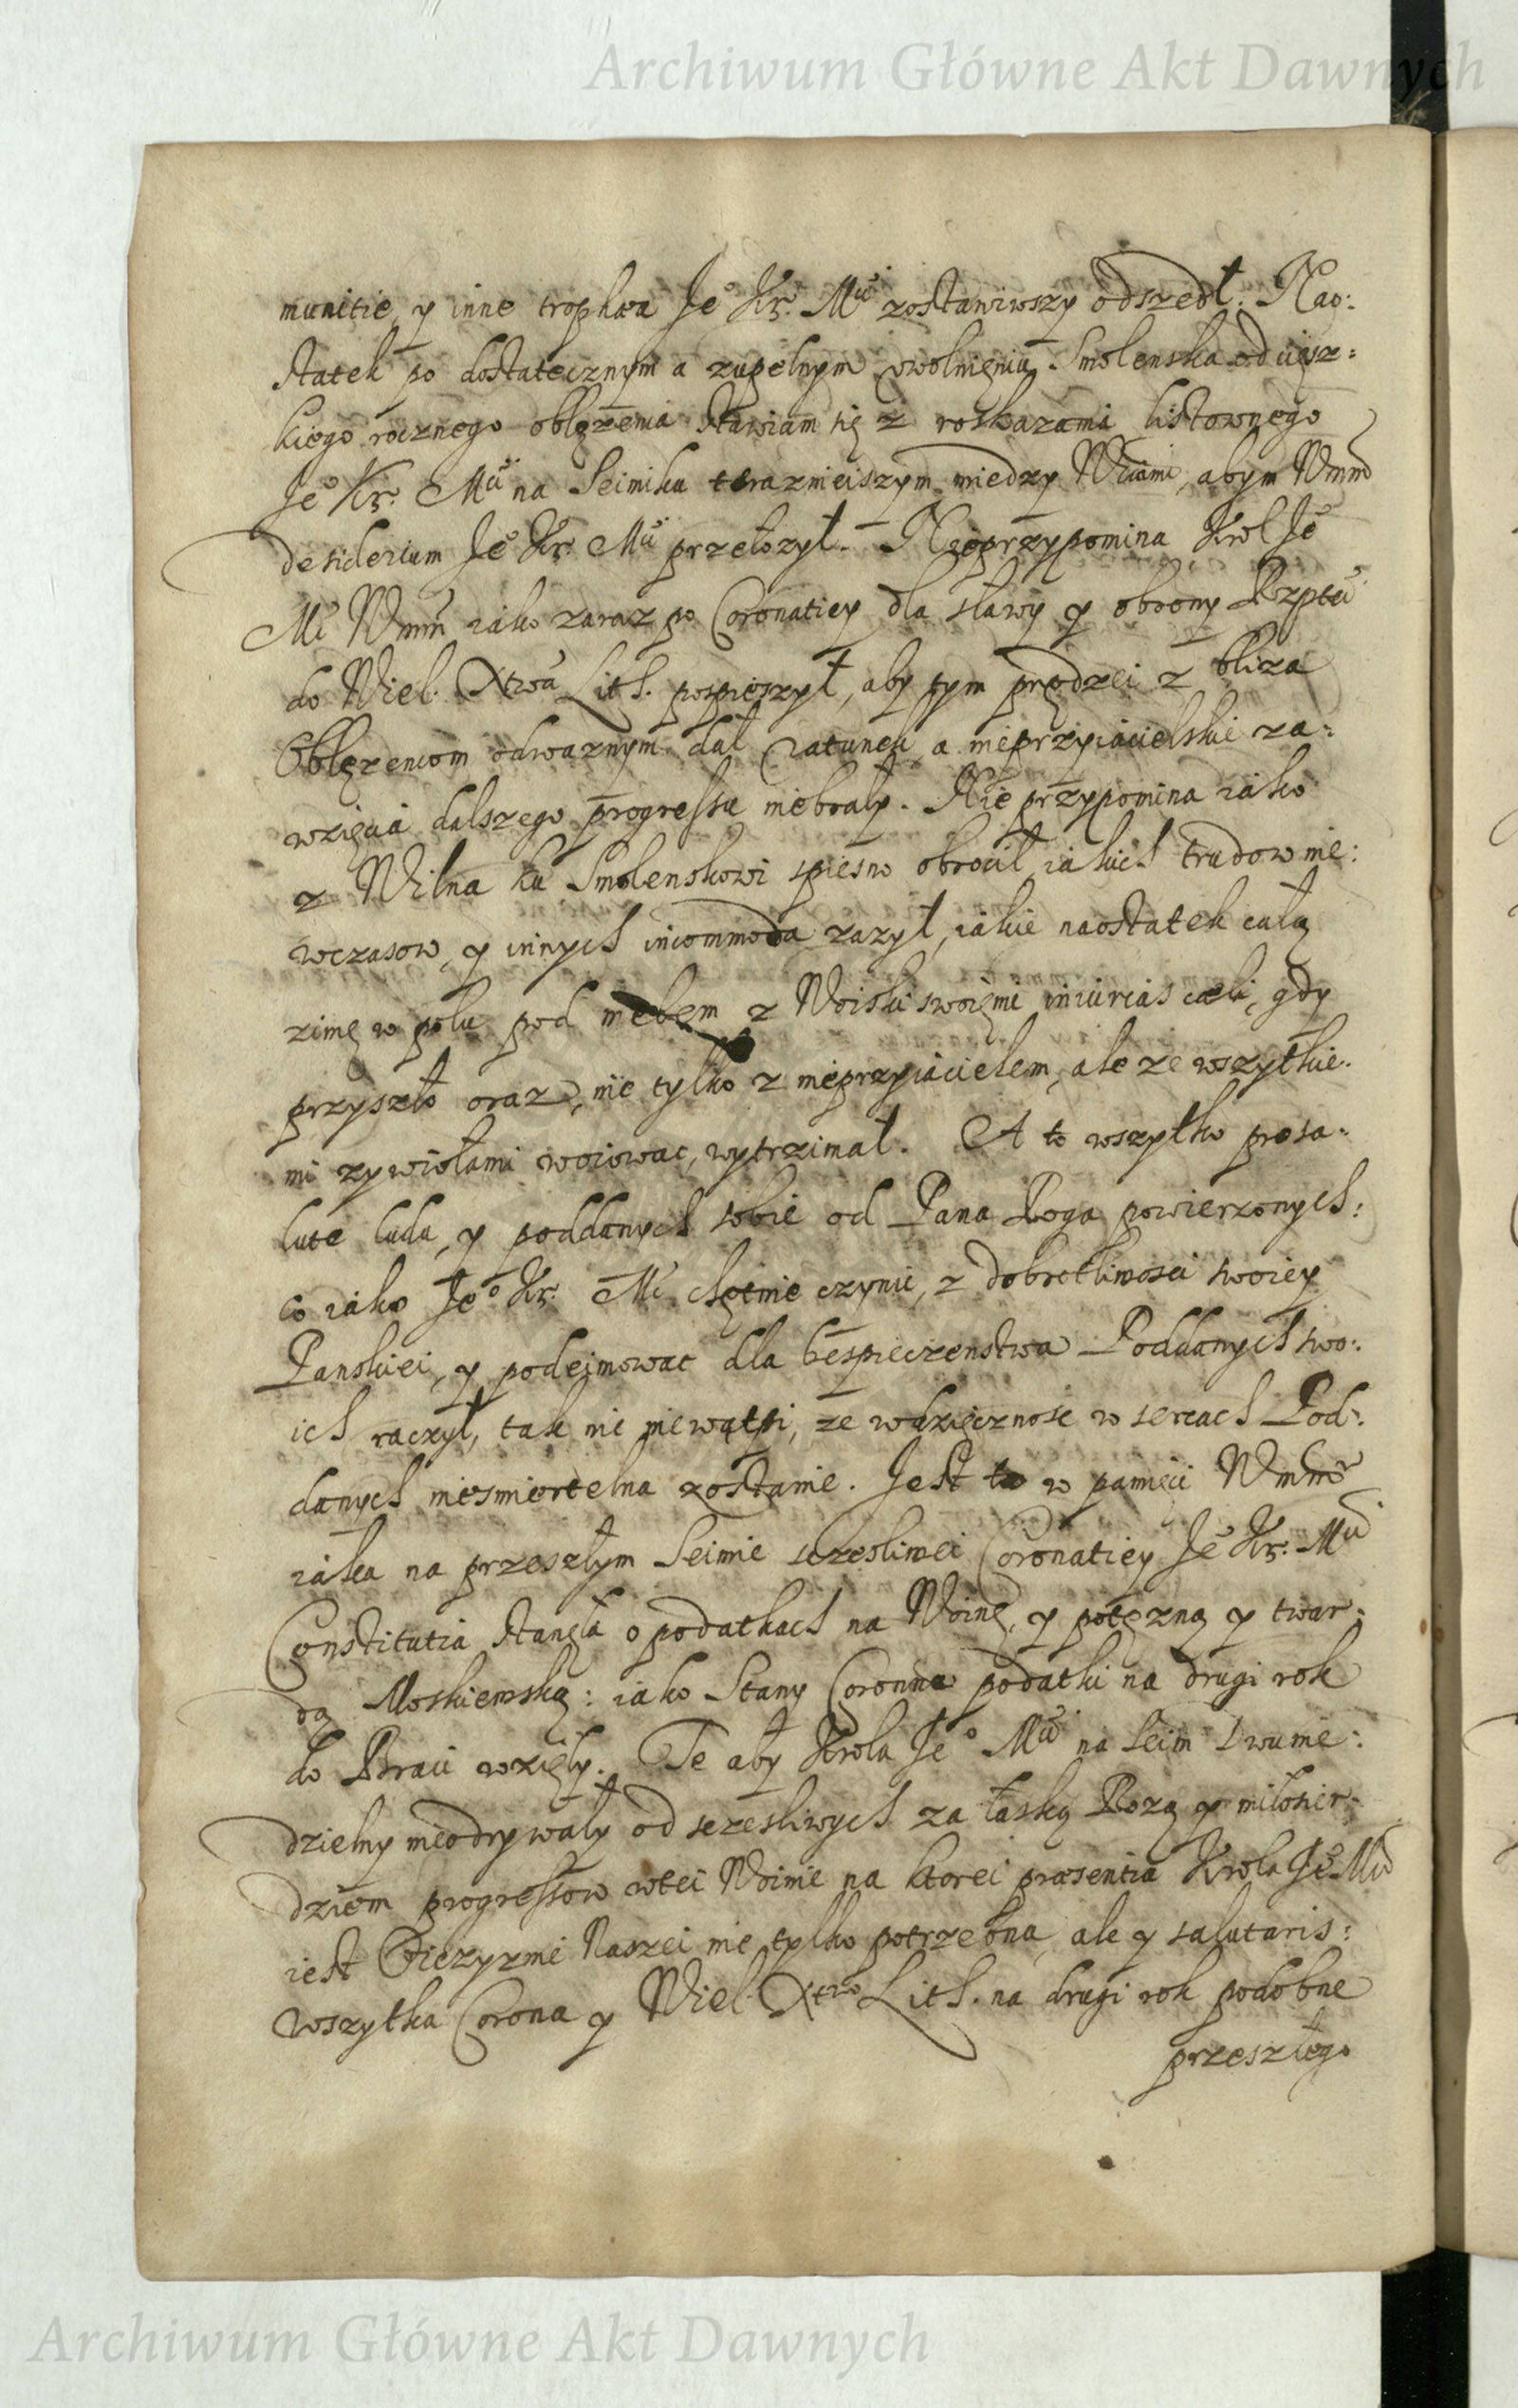 Archiwum Główne Akt Dawnych
munitie, y inne trophæa Je° Kr. Mci zostawiwszy odszedł. Nao:
statek po dostatecznym a zupełnym uwolnieniu Smolenska od ciesz:
kiego rocznego oblęzenia stawiam się z roskazania listownego
Je° Kr. Mci na Seimiku terazneiszym miedzy Wmciami, abym Wmm
desiderium Je° Kr. Mci przełozył. Nieprzypomina Krol Je°
Mć Wmm iako zaraz po Coronatiey dla sławy y obrony Rzptei
do Wiel. Xtwa Lith. pospieszył, aby tym prędzei z bliza
Oblęzencom odwaznym dał ratunek, a nieprzyiacielskie za:
wzięcia dalszego progressu niebrały. Nie przypomina iako
z Wilna ku Smolenskowi spiesno obrocił, iakich trudow nie:
wczasow, y innych incommoda zazył, iakie naostatek całą
zimę w polu pod niebem z Woiski swoięmi iniurias cæli, gdy
przyszło oraz, nie tylko z nieprzyiacielem, ale ze wszytkie.
mi zywiołami woiowac, wytrzimał. A to wszytko pro sa:
lute ludu, y poddanych sobie od Pana Boga powierzonych:
co iako Je° Kr. Mć chętnie czynic, z dobrotliwosci swoiey
Panskiei, y podeimowac dla bespieczenstwa Poddanych swo:
ich raczył, tak nic niewątpi, ze wdzięcznosc w sercach Pod:
danych niesmiertelna zostanie. Jest to w pamięci Wmm
iaka na przeszłym Seimie szczesliwei Coronatiey Je° Kr. Mci
Constitutia stanęła o podatkach na Woinę, y potęzną y twar:
dą Moskiewską: iako Stany Coronne podatki na drugi rok
do Braci wzięły. Te aby Krola Je° Mci na Seim dwunie:
dzielny nieodrywały od szczesliwych za łaską Bozą y miłosier:
dziem progressow wtei Woinie na ktorei præsentia Krola Je° Mci
iest Oiczyznie Naszei nie tylko potrzebna, ale y salutaris:
wszytka Corona y Wiel. Xtwo Lith. na drugi rok podobne
przeszłego
Archiwum Główne Akt Dawnych